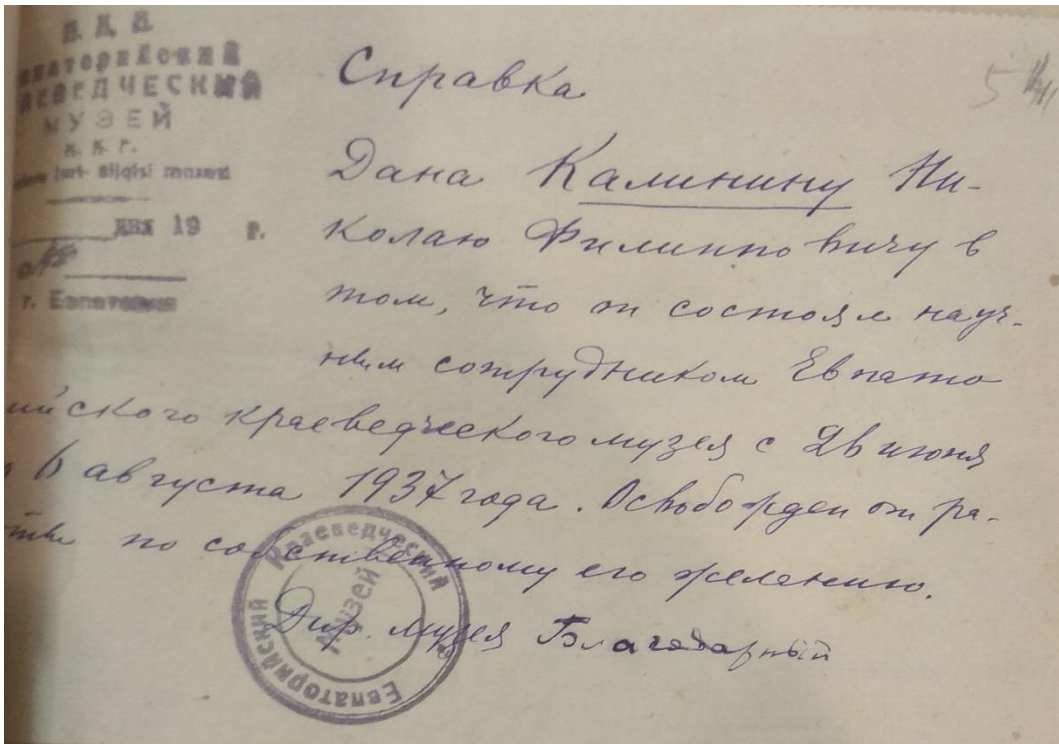 Н. К. П.
Евпаторийский
КРАЕВЕДЧЕСКИЙ
МУЗЕЙ
N. K. P.
jurt- bijgisi muzeesi
дня 19 г.
№
г. Евпатория
5
Справка
Дана Калинину Ни-
колаю Филипповичу в
том, что он состоял науч-
ным сотрудником Евпато
ийского краеведческого музея с 26 июня
6 августа 1937 года. Освобожден от ра-
по собственному его желению.
Дир. музея Благодарный
Краеведческий
Евпаторийский
музей